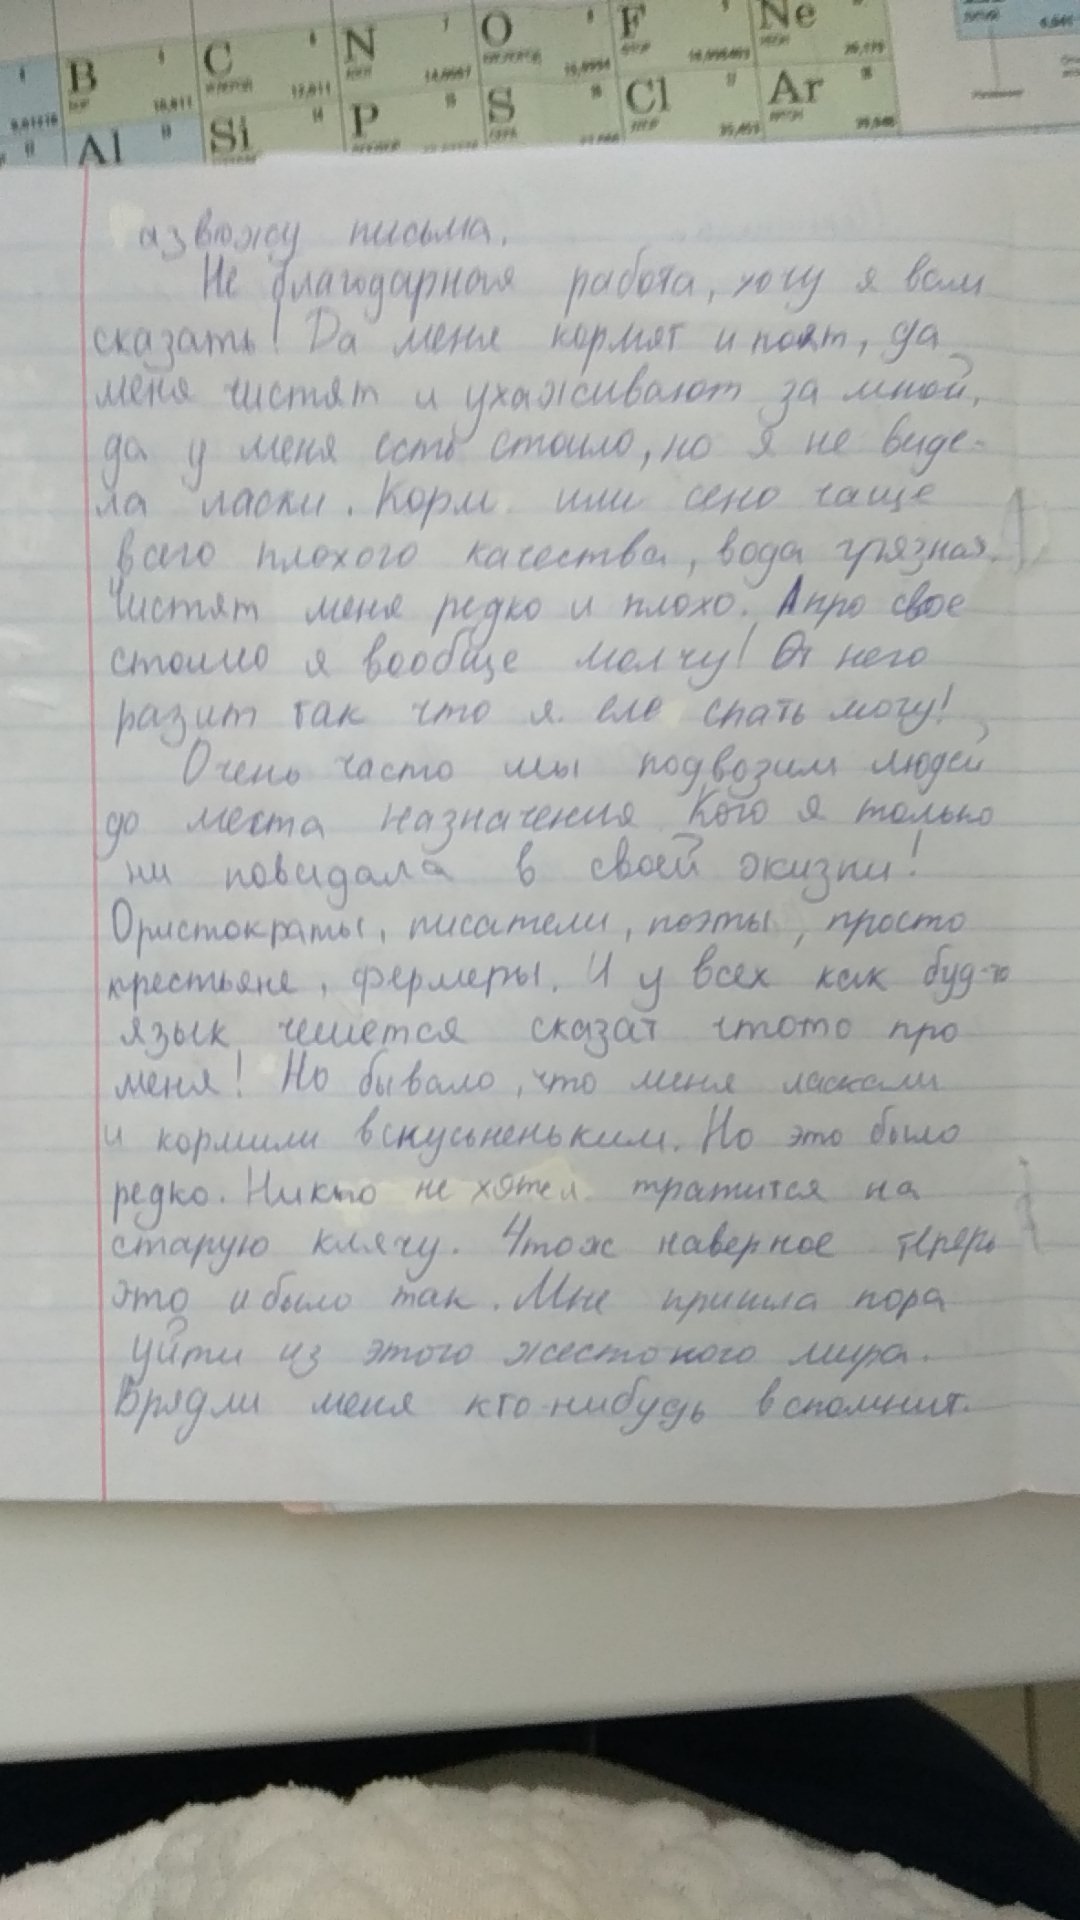 B C N O F Ne
10,811 12,011 14,0067 15,9994 18,998403 20,179
Al Si P S Cl Ar
35,453 39,948
азвожу письма.
Не благодарная работа, хочу я вам
сказать! Да меня кормят и поят, да
меня чистят и ухаживают за мной,
да у меня есть стоило, но я не виде-
ла ласки. Корм или сено чаще
всего плохого качества, вода грязная.
Чистят меня редко и плохо. А про свое
стоило я вообще молчу! От него
разит так что я еле спать могу!
Очень часто мы подвозим людей
до места назначения Кого я только
ни повидала в своей жизни!
Ористократы, писатели, поэты, просто
крестьяне, фермеры. И у всех как буд-то
язык чешется сказат чтото про
меня! Но бывало, что меня ласкали
и кормили вскусьненьким. Но это было
редко. Никто не хотел тратится на
старую клячу. Чтож наверное теперь
это и было так. Мне пришла пора
уйти из этого жестокого мира.
Врядли меня кто-нибудь вспомнит.